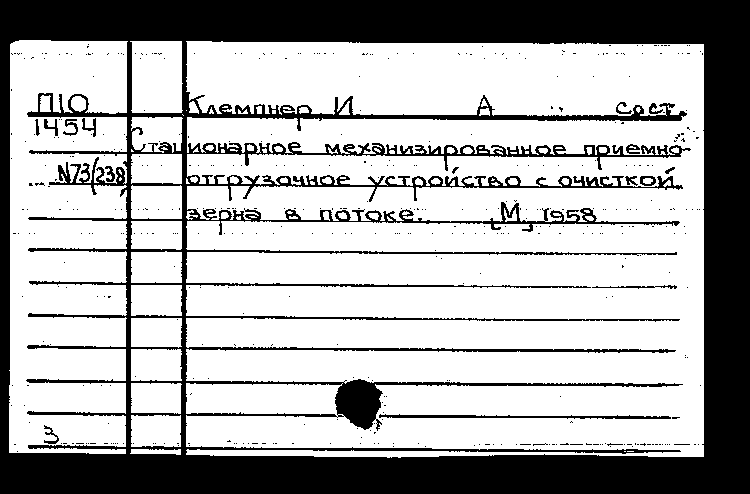 П10 Клемпнер, И А сост.
1454 Стационарное механизированное приемно-
N73(238) отгрузочное устройство с очисткой
зерна в потоке. [М], 1958
3